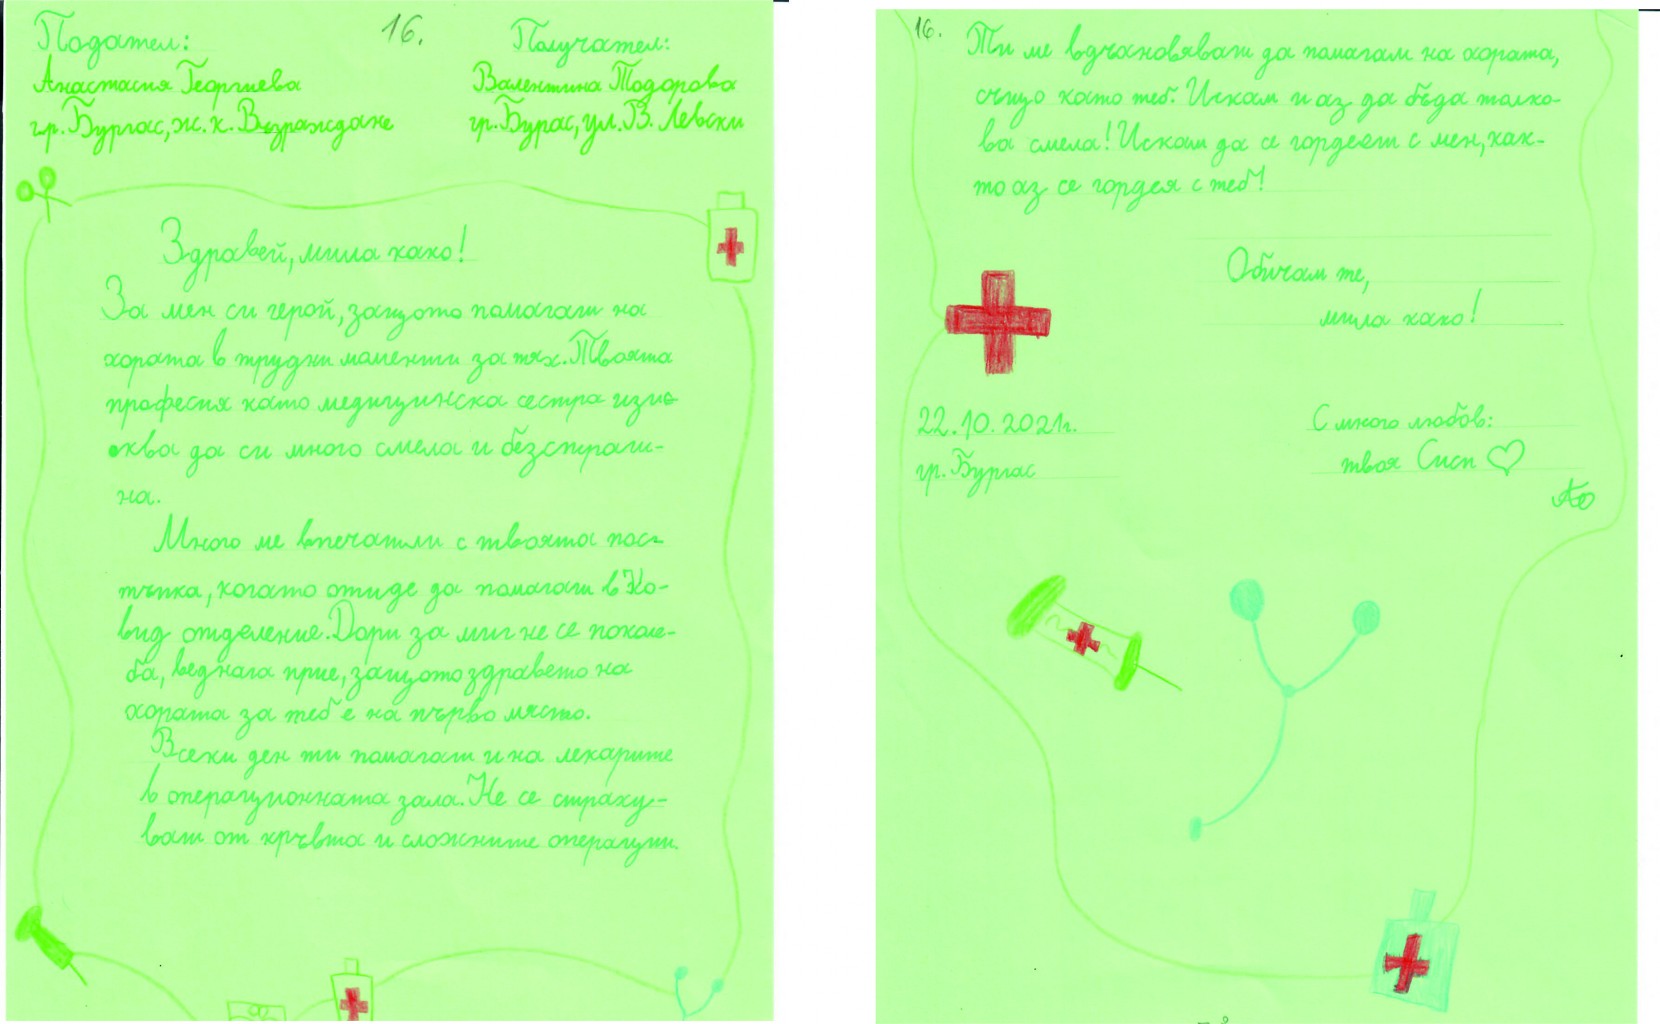 16.
Подател:
Анастасия Георгиева
гр. Бургас, ж. к. Възраждане
Получател:
Валентина Тодорова
гр. Бурас, ул. В. Левски
Здравей, мила како!
За мен си герой, защото помагаш на
хората в трудни моменти за тях. Твоята
професия като медицинска сестра изис-
ква да си много смела и безстраш-
на.
Много ме впечатли с твоята пос-
тъпка, когато отиде да помагаш в Ко-
вид отделение. Дори за миг не се поколе-
ба, веднага прие, защото здравето на
хората за теб е на първо място.
Всеки ден ти помагаш и на лекарите
в операционната зала. Не се страху-
ваш от кръвта и сложните операции.
16.
Ти ме вдъхновяваш да помагам на хората,
също като теб. Искам и аз да бъда толко-
ва смела! Искам да се гордееш с мен, как-
то аз се гордея с теб!
Обичам те,
мила како!
22.10.2021г.
гр. Бургас
С много любов:
твоя Сиси